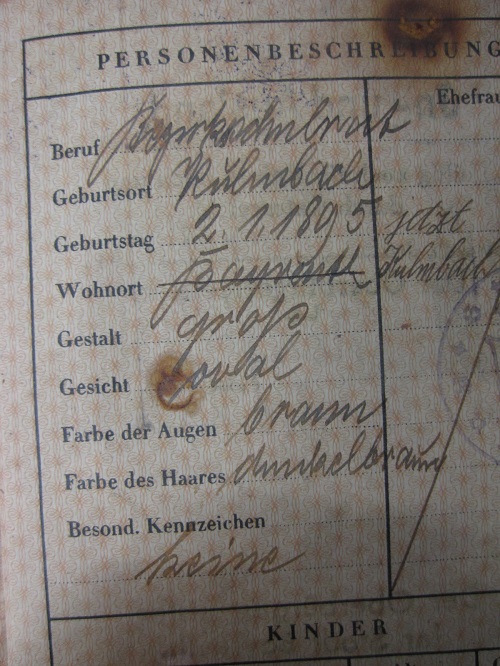 PERSONENBESCHREIBUNG
Ehefrau
Beruf Bezirksschulrat
Geburtsort Kulmbach
Geburtstag 2. 1. 1895 jetzt
Wohnort Bayreuth Kulmbach
Gestalt groß
Gesicht oval
Farbe der Augen braun
Farbe des Haares dunkelbraun
Besond. Kennzeichen
keine
KINDER